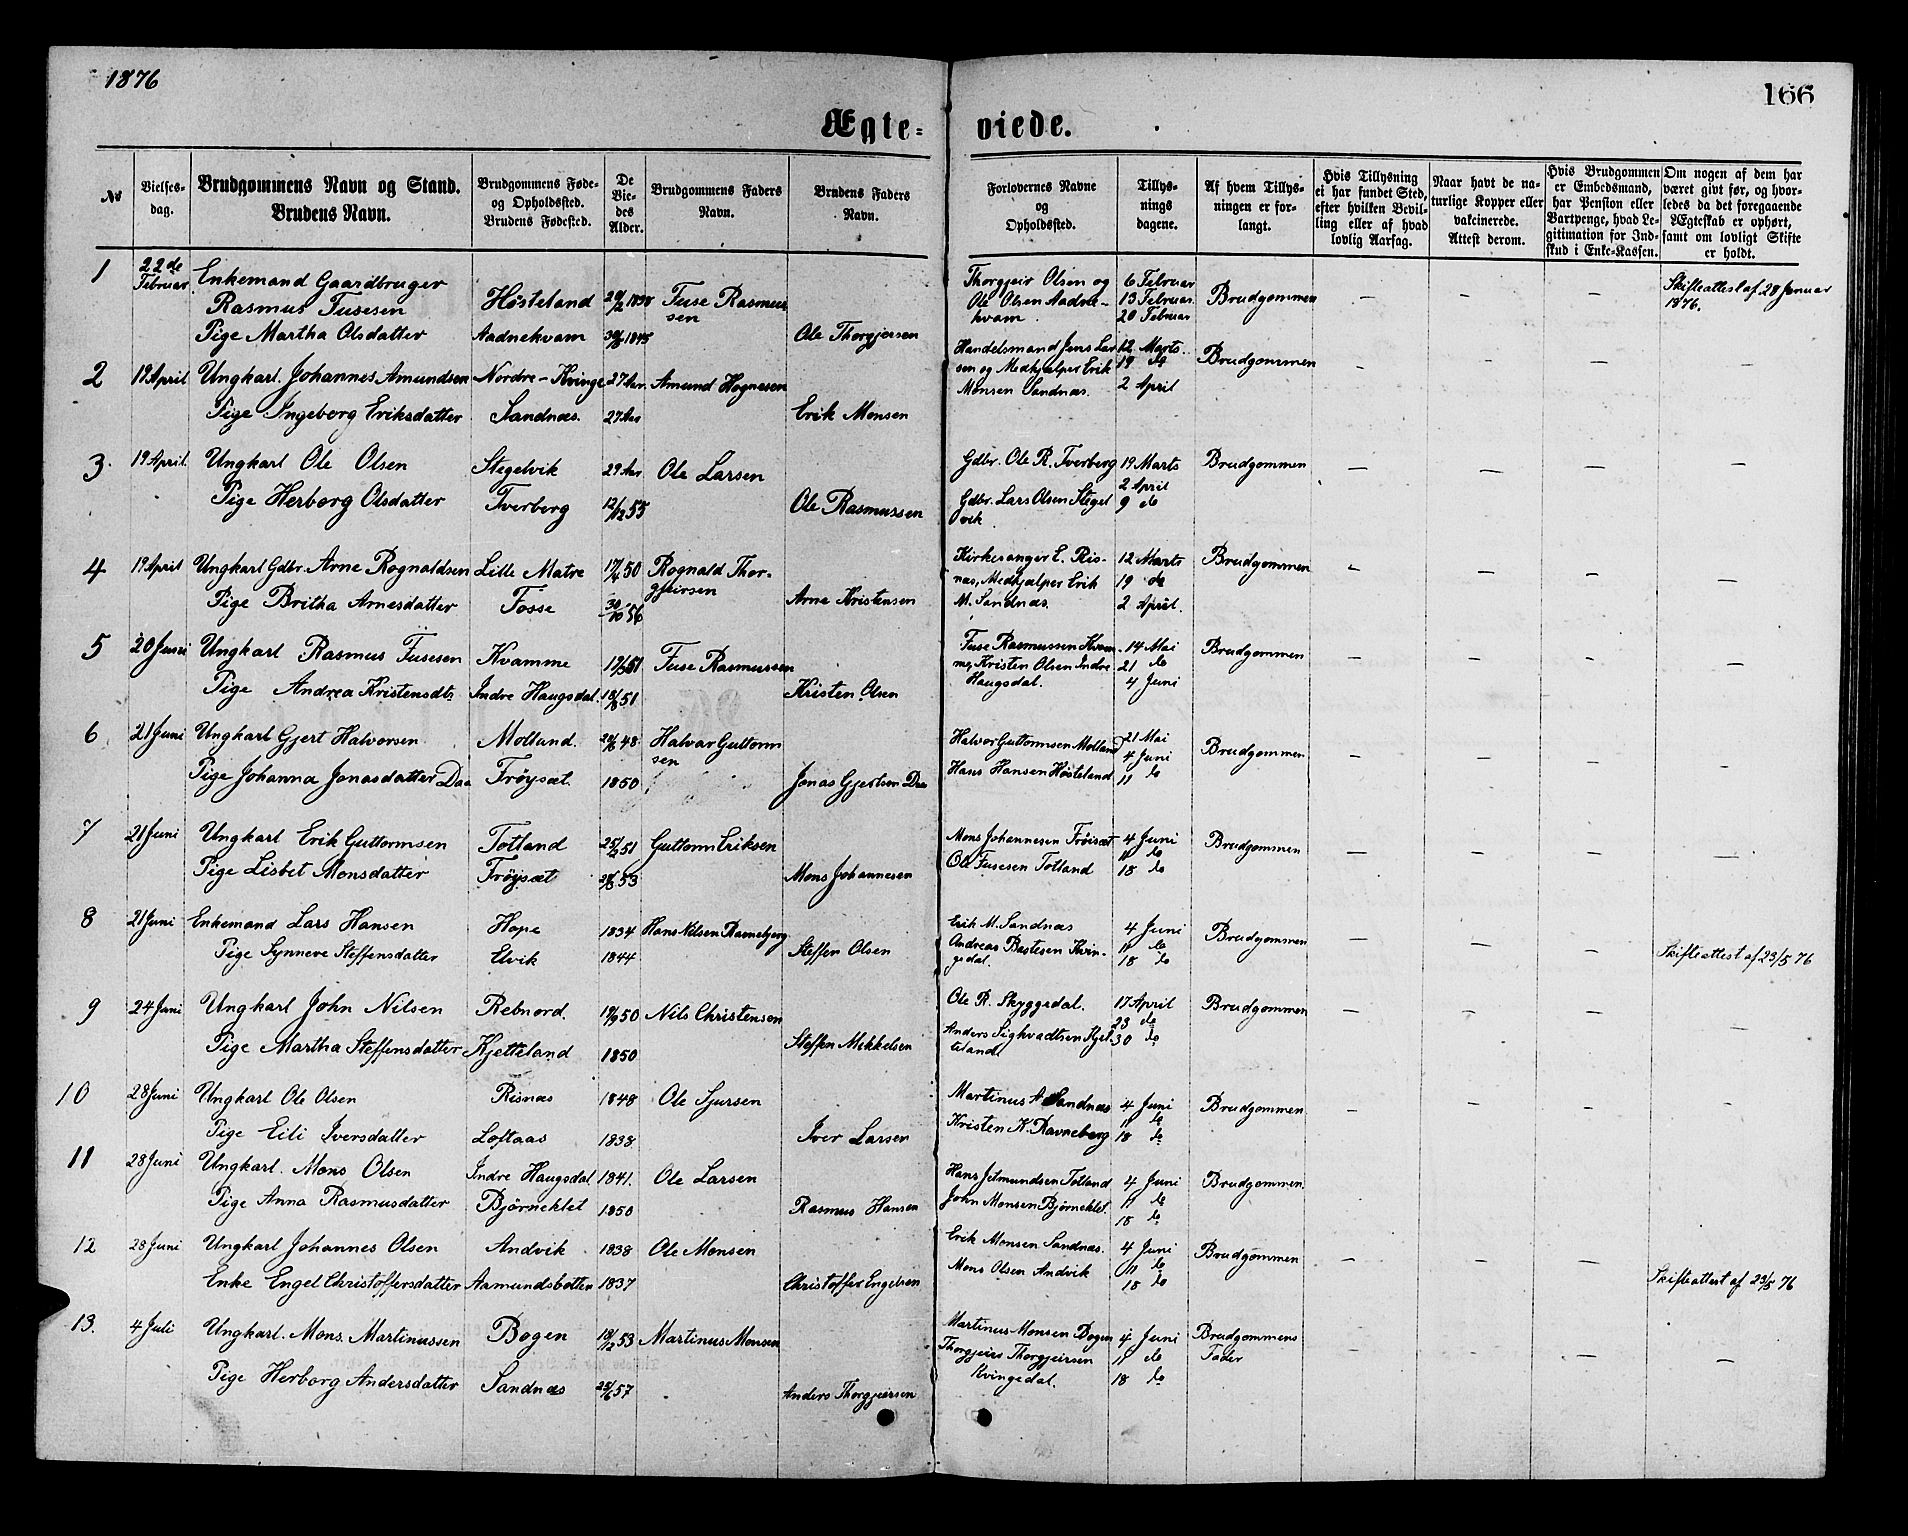 1876
166
Ægte-viede.
No
Vielses-dag.
Brudgommens Navn og Stand.
Brudens Navn.
Brudgommens Føde- og Opholdssted.
Brudens Fødested.
De Viedes Alder.
Brudgommens Faders Navn.
Brudens Faders Navn.
Forlovernes Navne og Opholdssted.
Tillysningsdagene.
Af hvem Tillysningen er forlangt.
Hvis Tillysning ei har fundet Sted, efter hvilken Bevilling eller af hvad lovlig Aarsag.
Naar havt de naturlige Kopper eller vakcinerede. Attest derom.
Hvis Brudgommen er Embedsmand, har Pension eller Vartpenge, hvad Legitimation for Indskud i Enke-Kassen.
Om nogen af dem har været givt før, og hvorledes da det foregaaende Ægteskab er ophørt, samt om lovligt Skifte er holdt.
1 22de Februar Enkemand Gaardbruger
Rasmus Fusesen Høsteland Fuse Rasmussen
Pige Martha Olsdatter Aadnekvam Ole Thorgjersen
Thorgjeir Olsen og Ole Olsen Aadnekvam
6 Februar
13 Februar
20 Februar
Brudgommen — — —
Skifteattest af 28 Januar 1876.
2 19 April Ungkarl. Johannes Amundsen Nordre-Kvinge 27 Aar Amund Hognesen
Pige Ingeborg Eriksdatter Sandnæs. 27 Aar Erik Monsen
Handelsmand Jens Larsen og Medhjælper Erik Monsen Sandnæs.
12 Marts.
19 de
2 April
Brudgommen — — — —
3. 19 April. Ungkarl Ole Olsen Stegelvik 29 Aar Ole Larsen
Pige Herborg Olsdatter Tverberg 12/12 55 Ole Rasmussen
Gdbr. Ole R. Tverberg
Gdbr. Lars Olsen Stegelvik
19 Marts
2 April
9 de
Brudgommen — — — —
4 19 April Ungkarl Gdbr. Arne Rognaldsen Lille Matre 17/4 50 Rognald Thorgjeirsen
Pige Britha Arnesdatter Fosse 30/10 56 Arne Kristensen
Kirkesanger E. Risnæs, Medhjælper Erik M. Sandnæs.
12 Marts
19 de
2 April.
Brudgommen — — — —
5 20 Juni Ungkarl Rasmus Fusesen Kvamme Fuse Rasmussen
Pige Andrea Kristensdtr Indre Haugsdal. Kristen Olsen
Fuse Rasmussen Kvamme, Kristen Olsen Indre Haugsdal.
14 Mai
21 de
4 Juni
Brudgommen — — — —
6 21 Juni Ungkarl Gjert Halvorsen Molland. Halvor Guttormsen
Pige Johanna Jonasdatter Daa Frøyset. 1850 Jonas Gjertsen Daa
Halvor Guttormsen Molland
Hans Hansen Høsteland
21 Mai
4 Juni
11 de
Brudgommen — — — —
7 21 Juni Ungkarl Erik Guttormsen Totland 25/2 51 Guttorm Eriksen
Pige Lisbet Monsdatter Frøysæt Mons Johannesen
Mons Johannesen Frøisæt
Ole Fusesen Totland
4 Juni
11 de
18 de
Brudgommen — — — —
8 21 Juni Enkemand Lars Hansen Hope 1834 Hans Nilsen Ravneberg
Pige Synneve Steffensdatter Elvik 1844 Steffen Olsen
Erik M. Sandnæs
Andreas Bastesen Kvingedal.
4 Juni
11 de
18 de
Brudgommen — — —
Skifteattest af 23/5 76
9 24 Juni Ungkarl John Nilsen Rebnord. Nils Christensen
Pige Martha Steffensdatter Kjetteland 1850 Steffen Mikkelsen
Ole R. Skyggedal.
Anders Sighvadtsen Kjetteland
17 April
23 de
30 de
Brudgommen — — — —
10 28 Juni Ungkarl Ole Olsen Risnæs 1848 Ole Sjursen
Pige Eili Iversdatter Loftaas 1838. Iver Larsen
Martinus A Sandnæs
Kristen K. Ravneberg
4 Juni
11 de
18 de
Brudgommen — — — —
11 28 Juni Ungkarl. Mons Olsen Indre Haugsdal 1841. Ole Larsen
Pige Anna Rasmusdatter Bjørneklet 1850 Rasmus Hansen
Hans Jetmundsen Totland
John Monsen Bjørneklet.
4 Juni
11 de
18 de
Brudgommen.
12 28 Juni Ungkarl Johannes Olsen Andvik 1838 Ole Monsen
Enke Engel Christoffersdatter Aamundsbotten 1837 Christoffer Engelsen
Erik Monsen Sandnæs.
Mons Olsen Andvik
4 Juni
11 de
18 de
Brudgommen — — —
Skifteattest af 23/5 76
13. 4 Juli Ungkarl. Mons Martinussen Bogen 18/12 53 Martinus Monsen
Pige Herborg Andersdatter Sandnæs Anders Thorgjersen
Martinus Monsen Bogen
Thorgjeirs Thorgjeirsen Kvingedal.
4 Juni
11 de
18 de
Brudgommens Fader — — — —